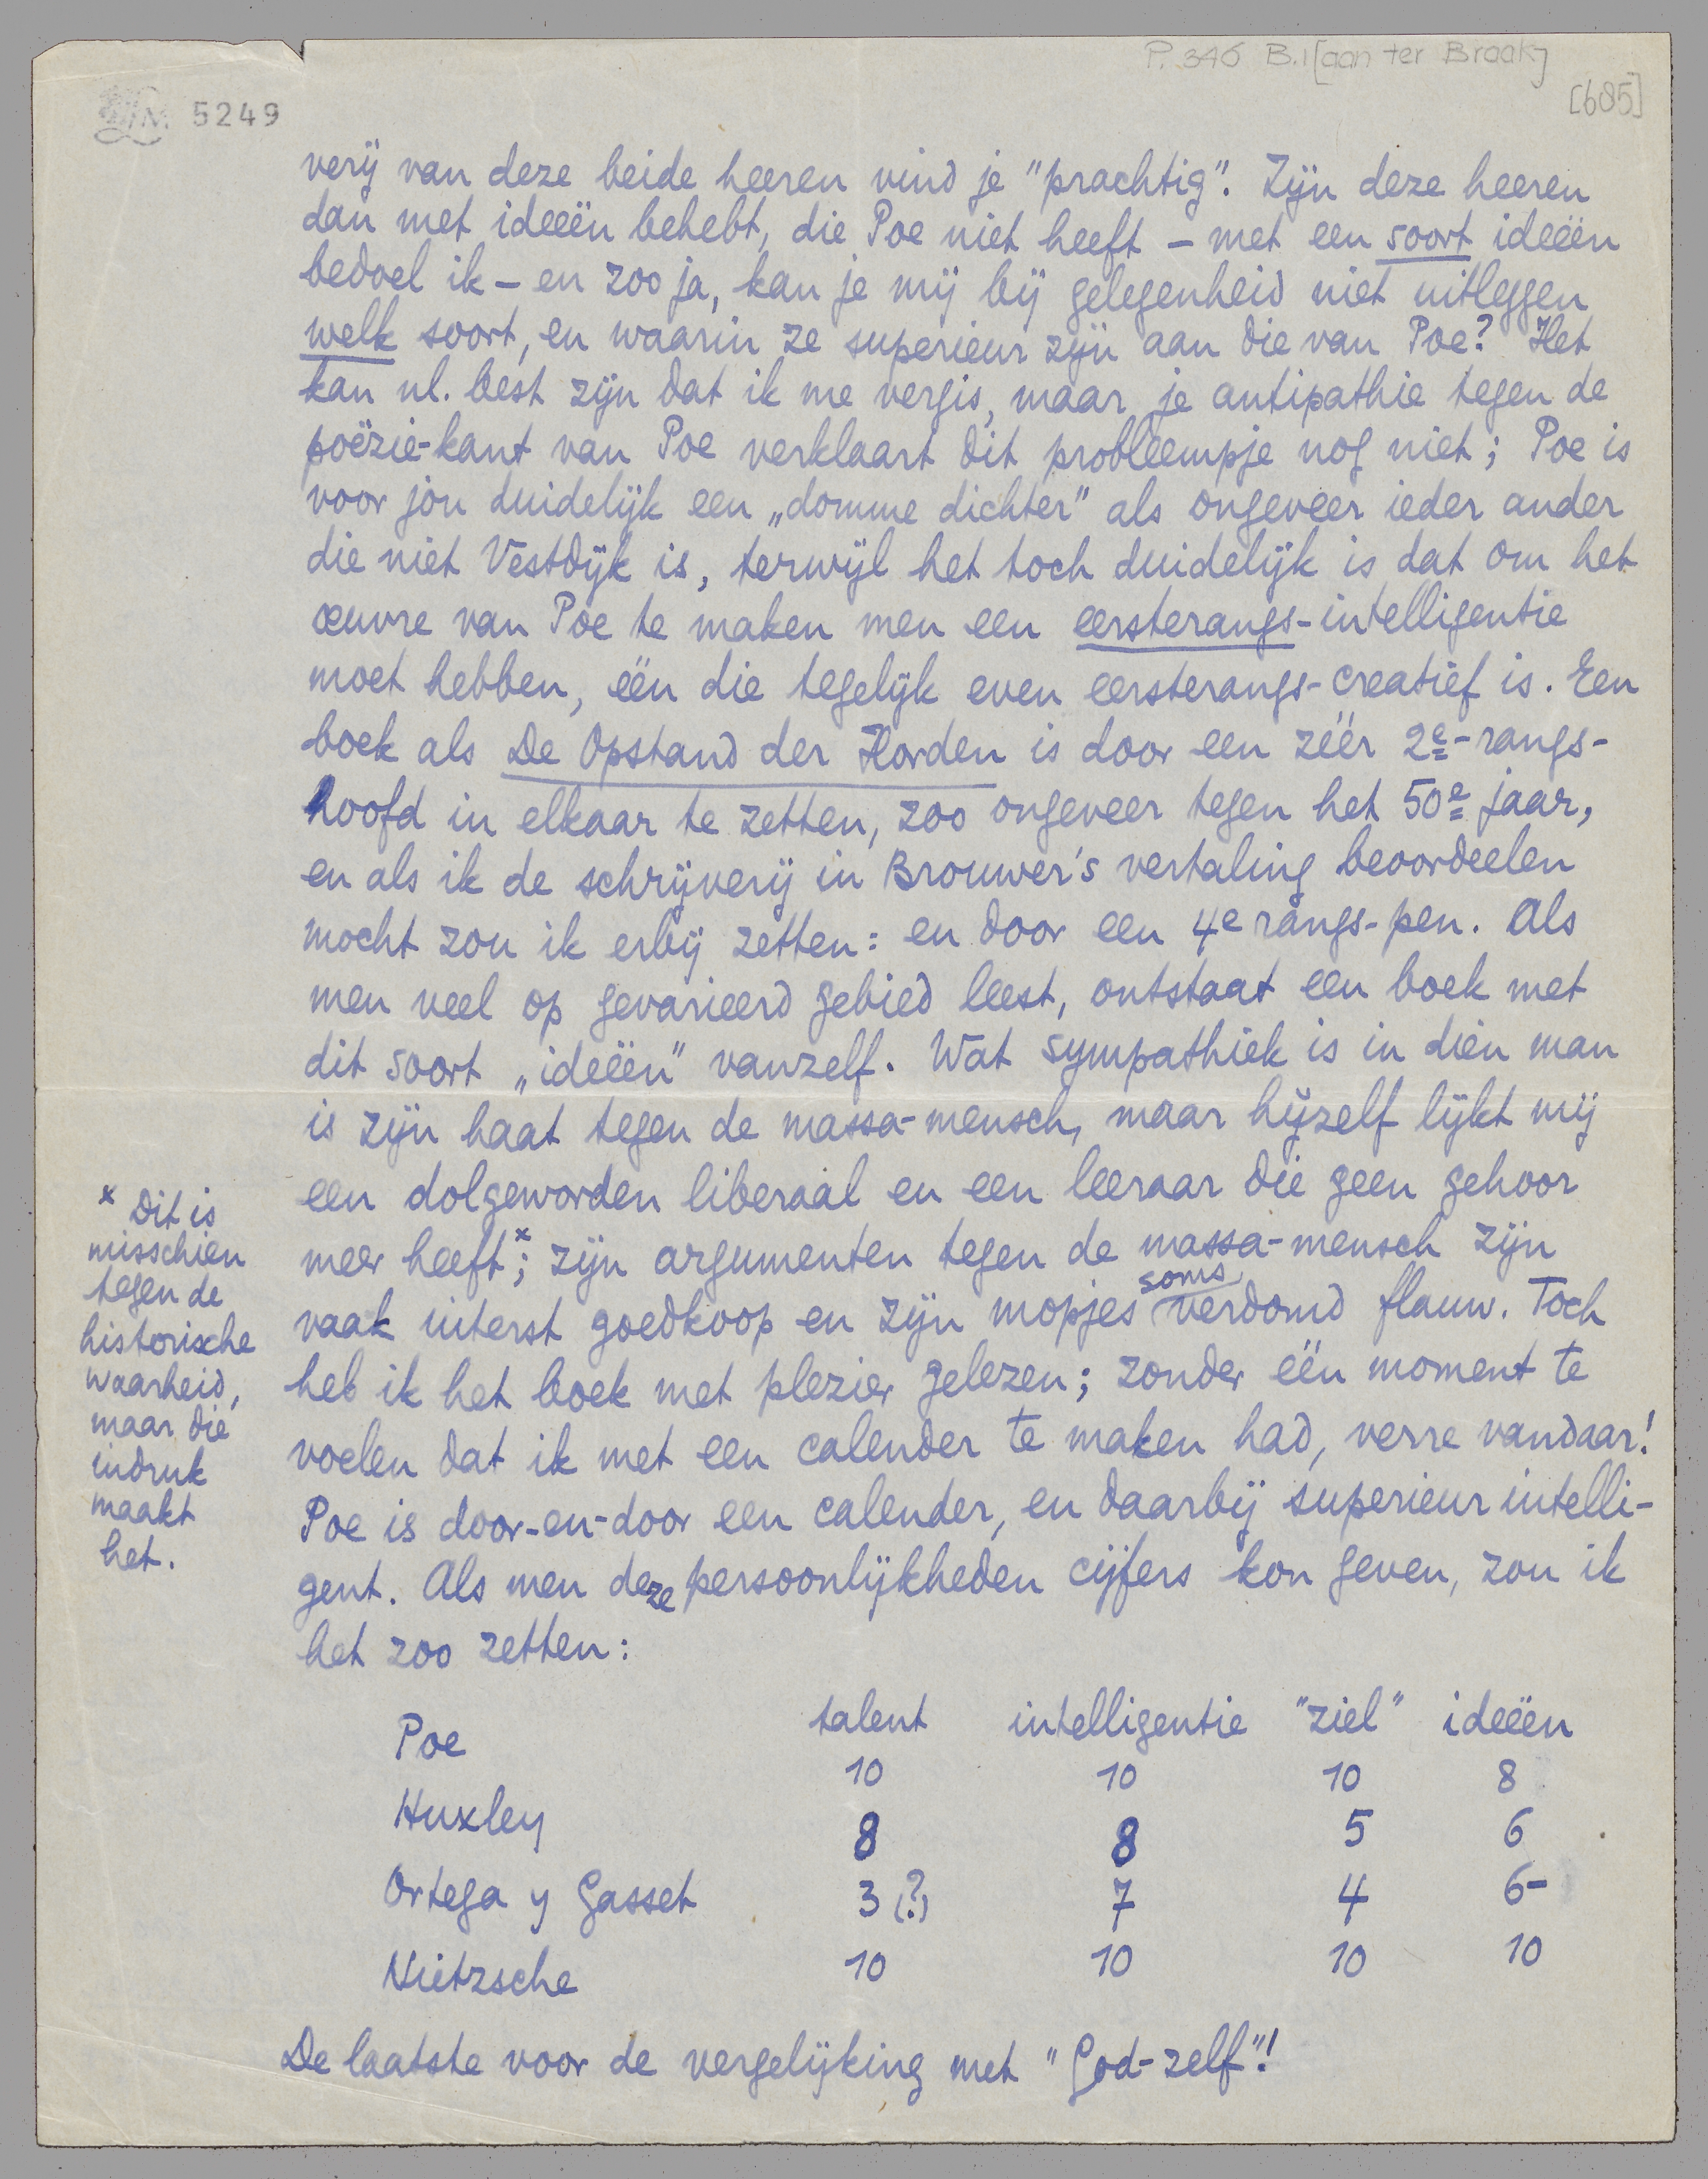 P. 346 B.1 [aan ter Braak]
[685]
LM 5249
verij van deze beide heeren vind je "prachtig". Zijn deze heeren
dan met ideeën behebt, die Poe niet heeft – met een soort ideeën
bedoel ik – en zoo ja, kan je mij bij gelegenheid niet uitleggen
welk soort, en waarin ze superieur zijn aan die van Poe? Het
kan nl. best zijn dat ik me vergis, maar je antipathie tegen de
poëzie-kant van Poe verklaart dit probleempje nog niet; Poe is
voor jou duidelijk een „domme dichter" als ongeveer ieder ander
die niet Vestdijk is, terwijl het toch duidelijk is dat om het
œuvre van Poe te maken men een eersterangs-intelligentie
moet hebben, één die tegelijk even eersterangs-creatief is. Een
boek als De Opstand der Horden is door een zéér 2e-rangs-
hoofd in elkaar te zetten, zoo ongeveer tegen het 50e jaar,
en als ik de schrijverij in Brouwer's vertaling beoordeelen
mocht zou ik erbij zetten: en door een 4e rangs-pen. Als
men veel op gevarieerd gebied leest, ontstaat een boek met
dit soort „ideeën" vanzelf. Wat sympathiek is in dien man
is zijn haat tegen de massa-mensch, maar hijzelf lijkt mij
een dolgeworden liberaal en een leeraar die geen gehoor
meer heeft x; zijn argumenten tegen de massa-mensch zijn
vaak uiterst goedkoop en zijn mopjes soms verdomd flauw. Toch
heb ik het boek met plezier gelezen; zonder één moment te
voelen dat ik met een calender te maken had, verre vandaar!
Poe is door-en-door een calender, en daarbij superieur intelli-
gent. Als men deze persoonlijkheden cijfers kon geven, zou ik
het zoo zetten:
x Dit is
misschien
tegen de
historische
waarheid,
maar die
indruk
maakt
het.
talent intelligentie "ziel" ideeën
Poe 10 10 10 8
Huxley 8 8 5 6
Ortega y Gasset 3 (?) 7 4 6-
Nietzsche 10 10 10 10
De laatste voor de vergelijking met "God-zelf"!